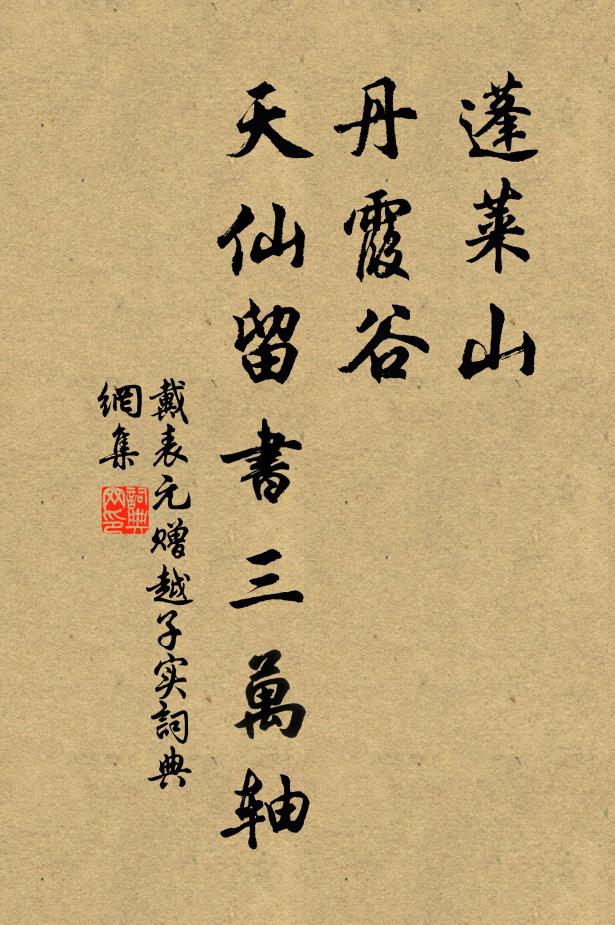 蓬萊山
丹霞谷
天仙留書三萬轴
戴表元赠越子实詞典
網集
詞典
网印